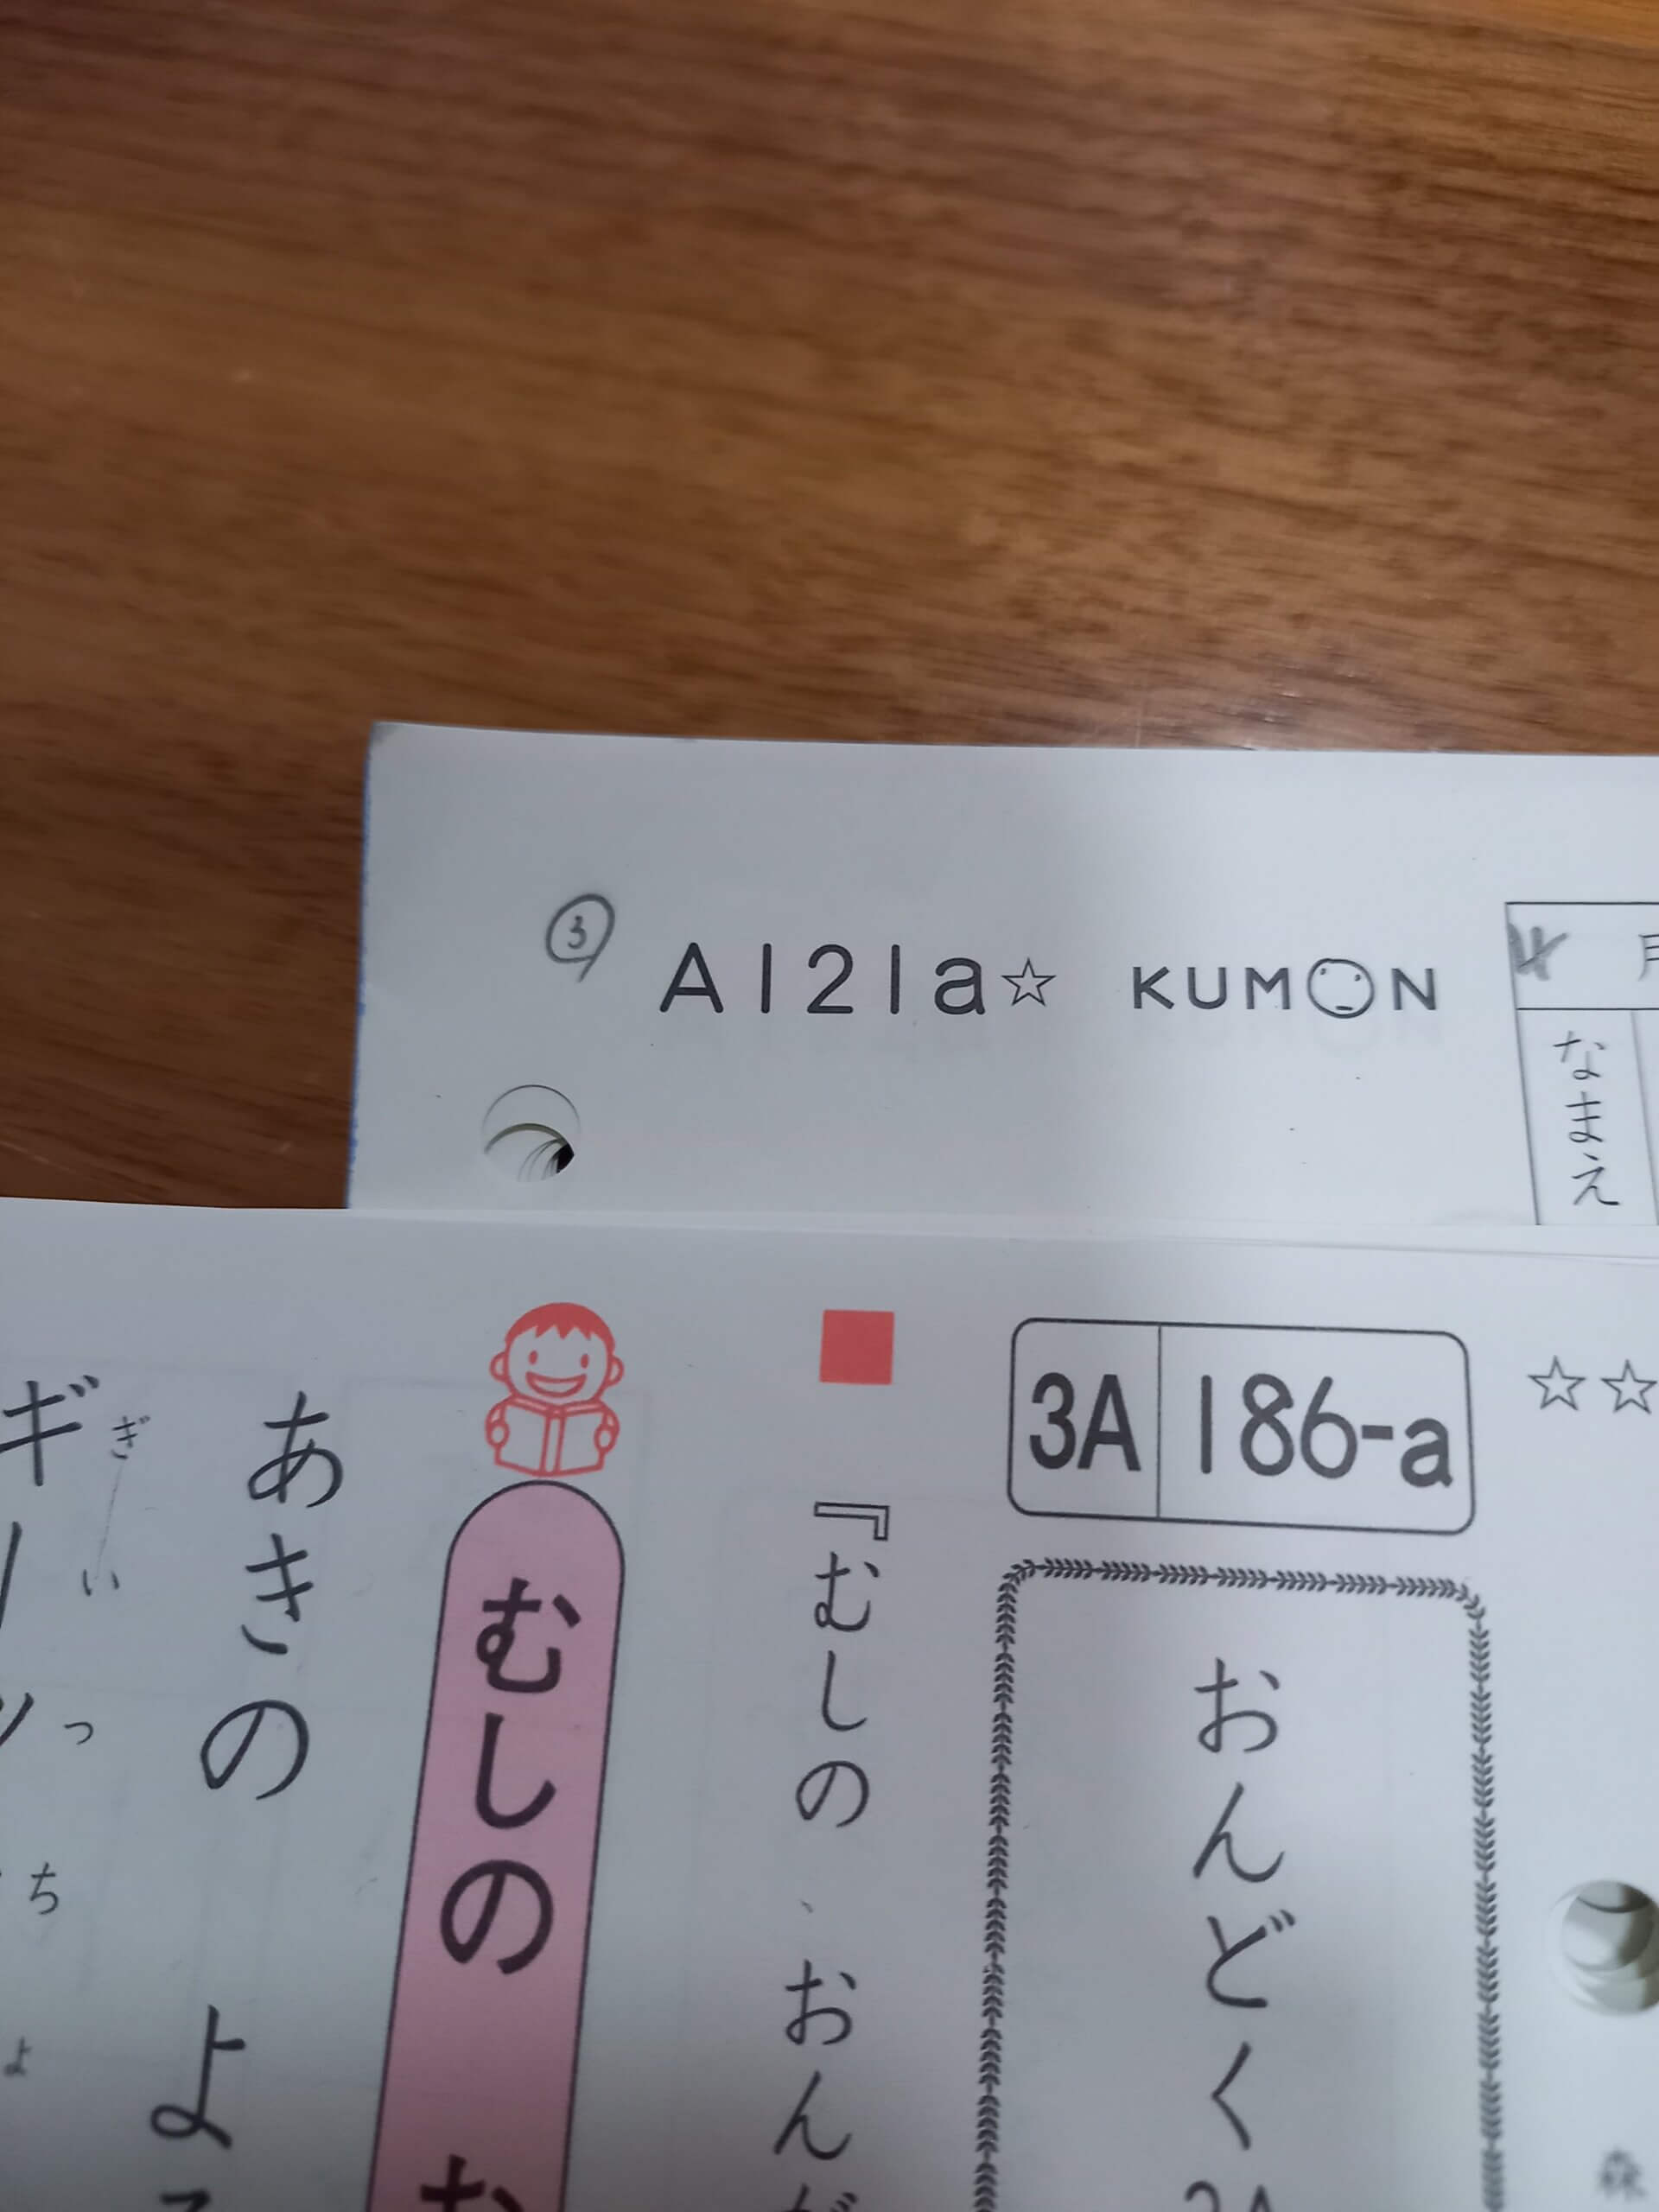 ③ A121a☆ KUMON
なまえ
☆☆
3A 186-a
おんどく
『むしの おん
むしの
あきの
ぎ
い
っ
ち
ょ
ギ